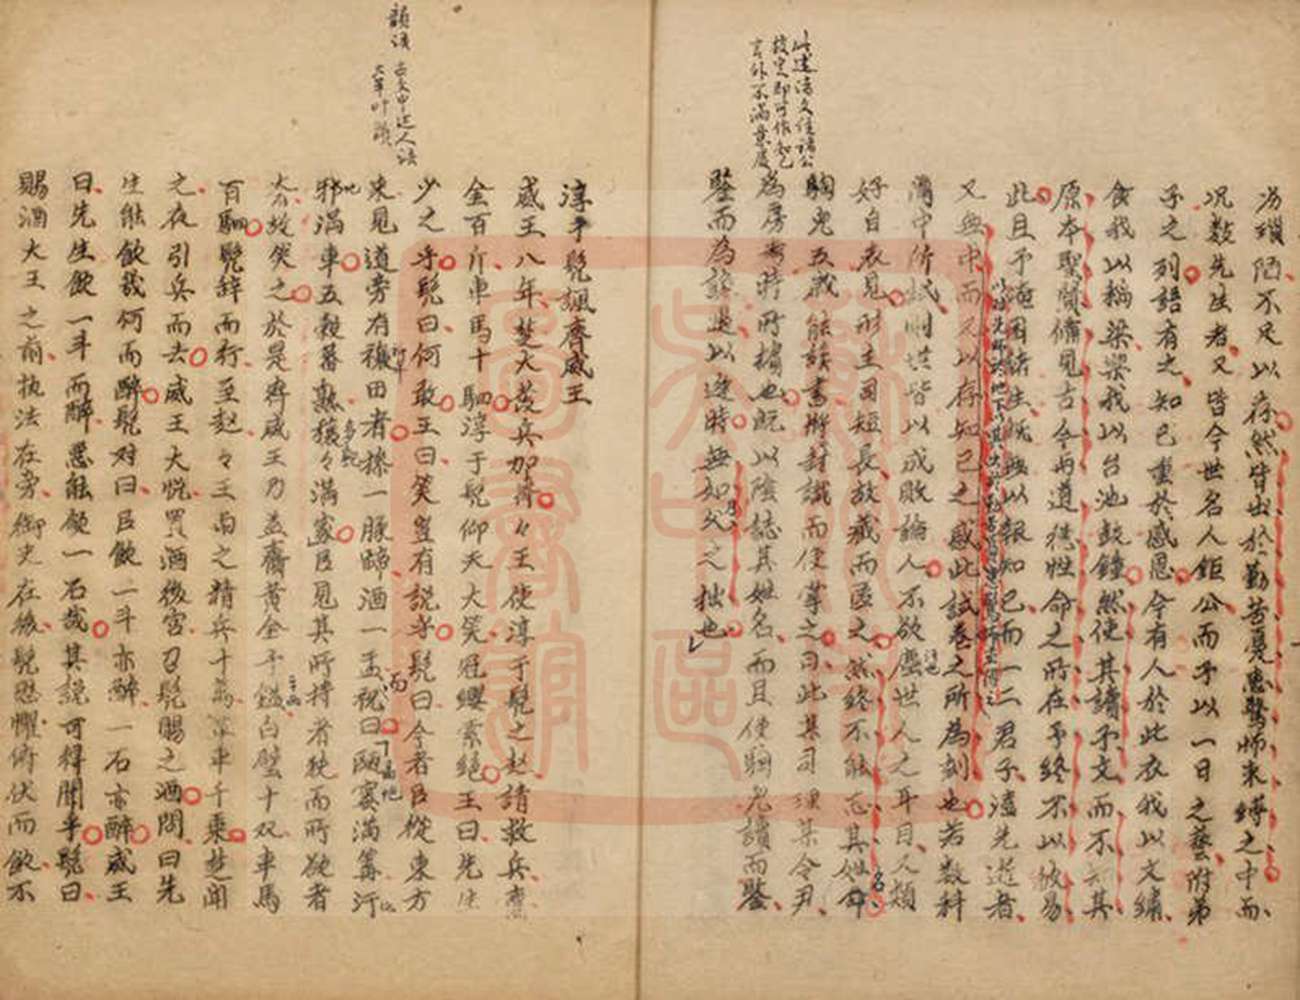 此達濤文佳諸公
言外不滿意度
汤瑣陋不足以存然皆出於勤苦憂患驚怖束縛之中而
况数先生者又皆今世名人鉅公而予以一日之藝附弟
子之列語有之知己重於感恩今有人於此衣我以文繡
食我以稻梁樂我以台池鼓鐘然使其讀予文而不知其
原本聖賢備見古今与道德性命之所在予終不以彼易
此且予淹困諸生既無以報知己而一二君子溘先逝者
又無由而又以存知己之感此試卷之所為刻也若数科
闈中所試則世皆以成敗論人不欲塵世人之耳目又類
好自表見形主司短長故藏而匿之然終不能忘其姓名
駒兒五歲能讀書將封識而使掌之曰此某司理某令尹
為房考時所擯也既以陰誌其姓名而且使駒兒讀而鑒
鑒而為詭遇以逢時無如父之拙也
韻語
古文中述人語
大率叶韻
淳于髡諷齊威王
威王八年楚大發兵加齊々王使淳于髡之赵請救兵齎
金百斤車馬十駟淳于髡仰天大笑冠纓索絕王曰先生
少之乎髡曰何敢王曰笑豈有說乎髡曰今者臣從東方
來見道旁有穰田者操一豚蹄酒一盂祝曰甌窶滿篝汙
邪滿車五穀蕃熟穰々滿家臣見其所持者狭而所欲者
奢故笑之於是齊威王乃益齎黄金千鎰白璧十双車馬
百駟髡辞而行至赵々王与之精兵十萬革車千乘楚聞
之夜引兵而去威王大悦置酒後宮召髡賜之酒問曰先
生能飲幾何而醉髡对曰臣飲一斗亦醉一石亦醉威王
曰先生飲一斗而醉惡能飲一石哉其説可得聞乎髡曰
賜酒大王之前执法在旁御史在後髡恐懼俯伏而飲不